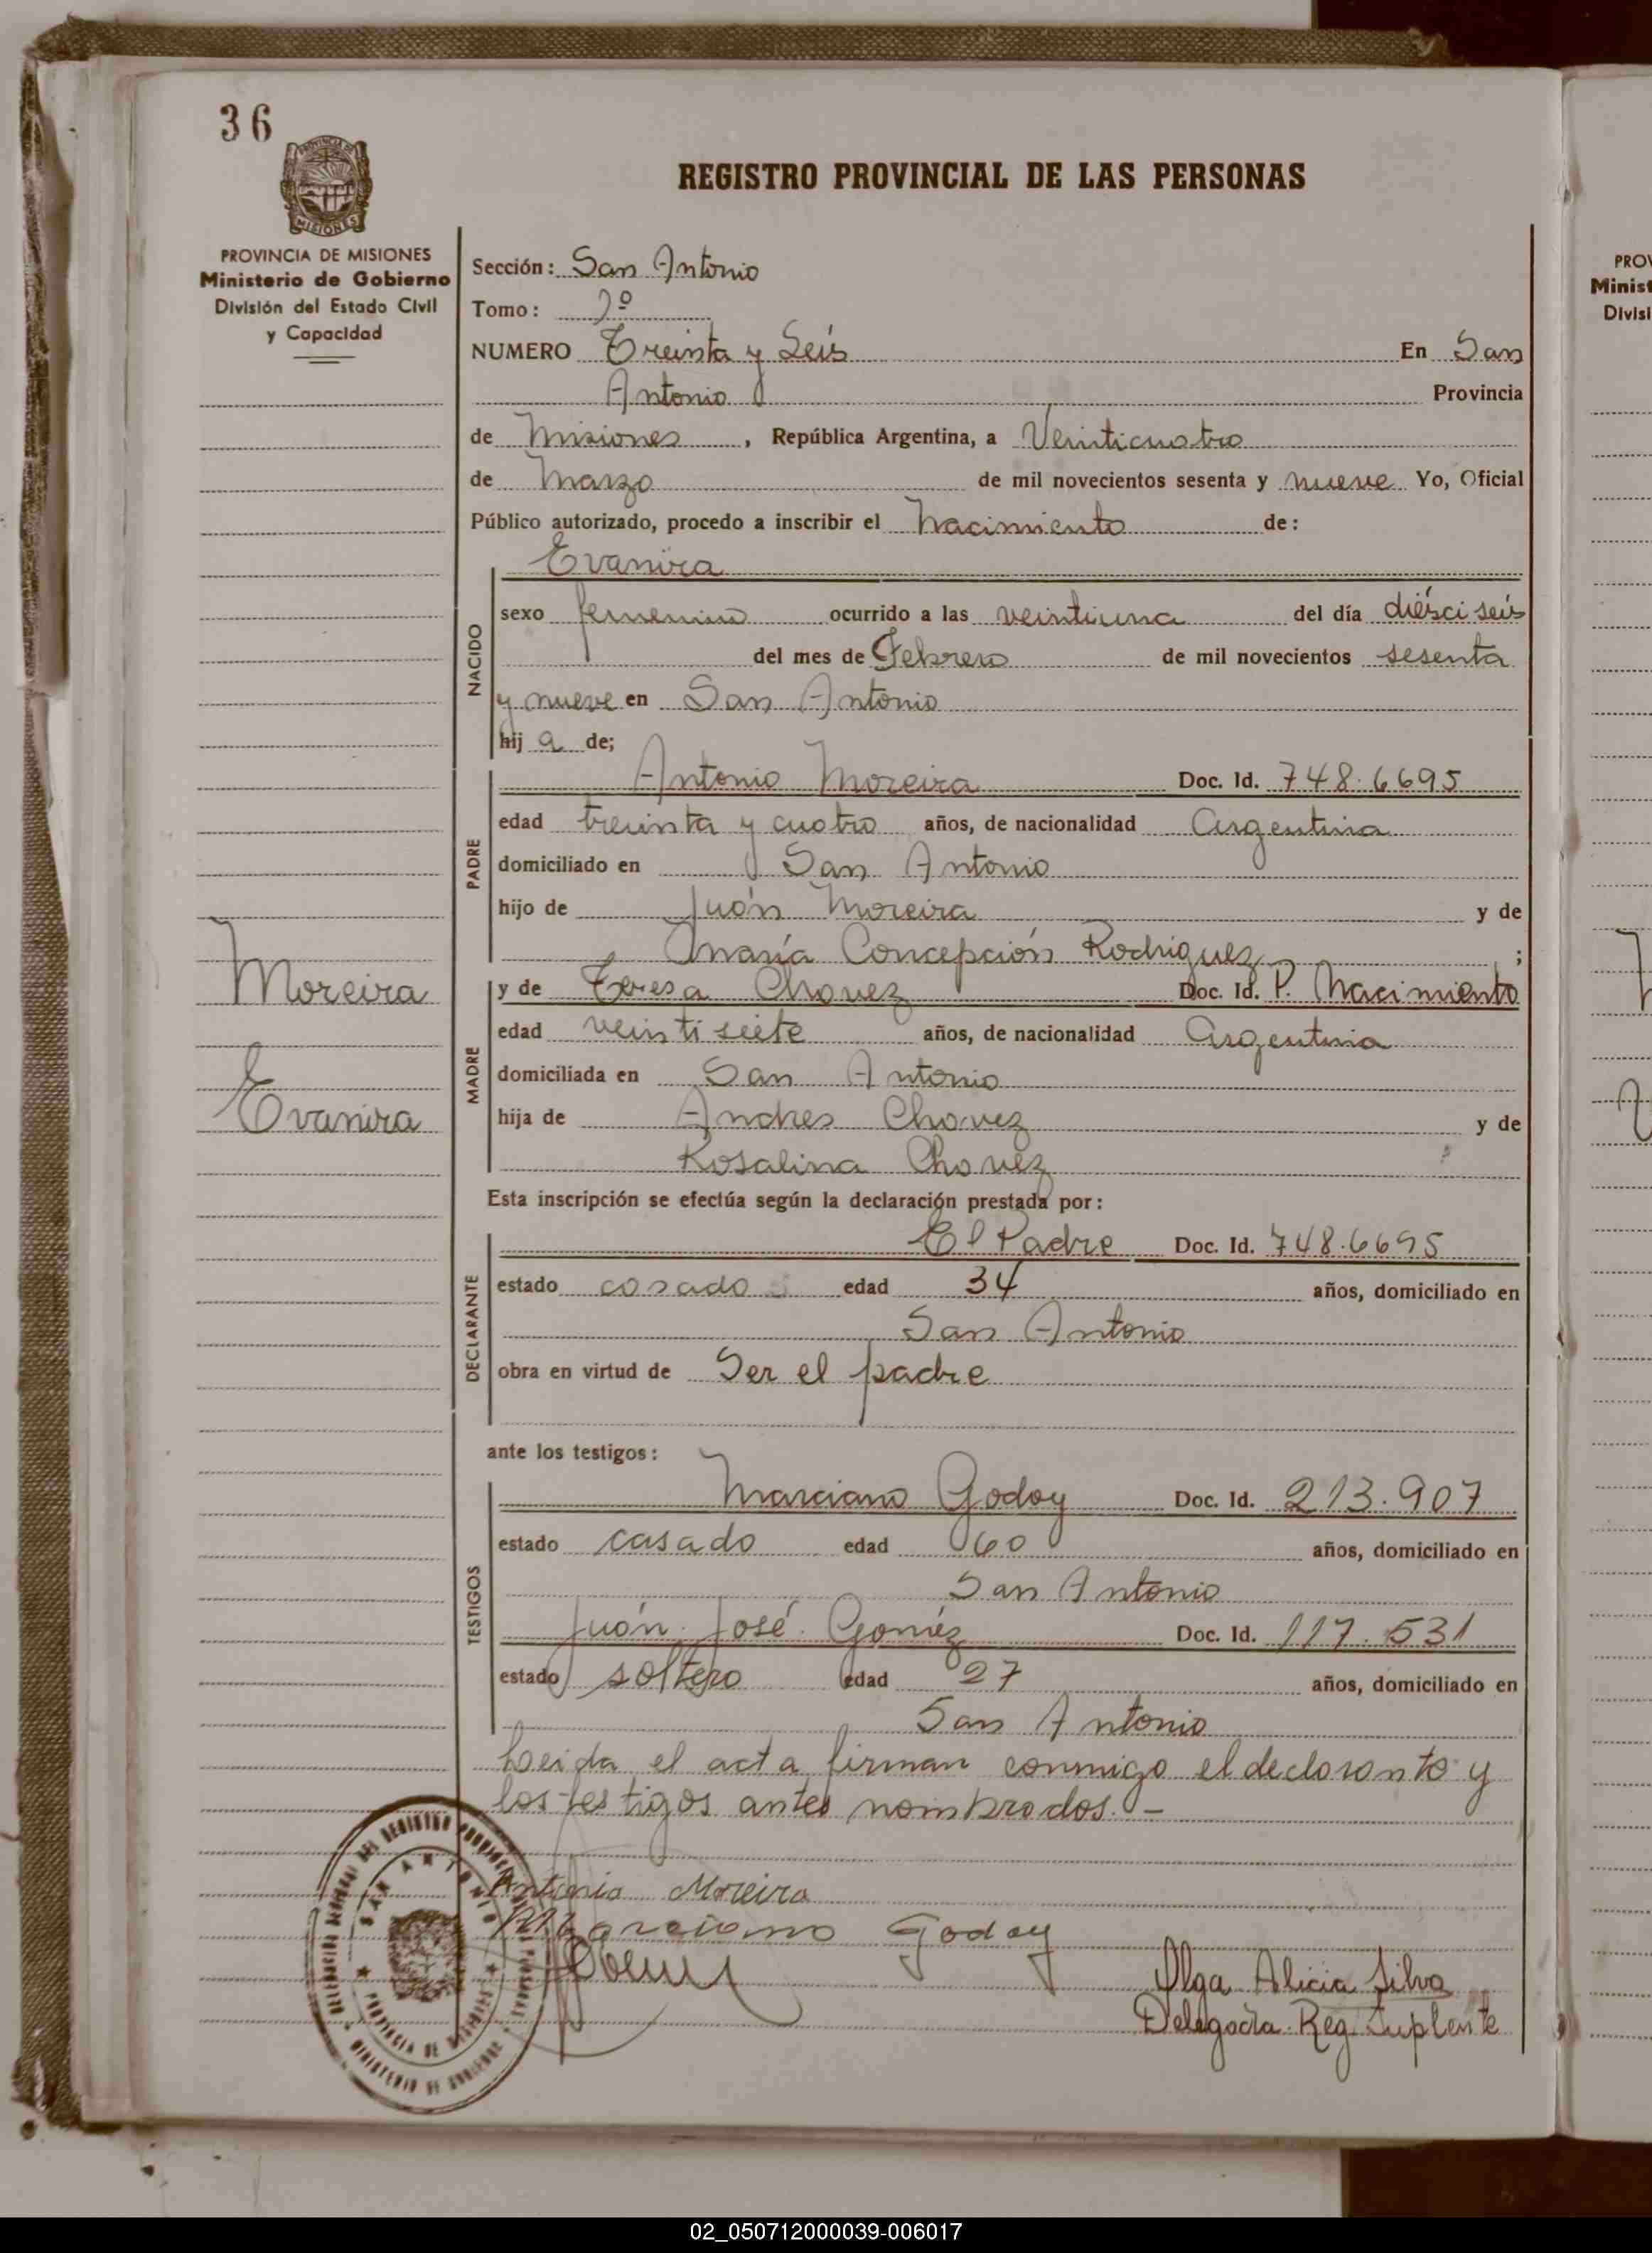 36
PROVINCIA DE MISIONES
Ministerio de Gobierno
División del Estado Civil
y Capacidad
REGISTRO PROVINCIAL DE LAS PERSONAS
Sección: San Antonio
Tomo: 1º
NUMERO Treinta y Seis En San
Antonio Provincia
de Misiones, República Argentina, a Veinticuatro
de Marzo de mil novecientos sesenta y nueve Yo, Oficial
Público autorizado, procedo a inscribir el Nacimiento de:
Evanira
NACIDO
sexo femenino ocurrido a las veintiuna del día diésci seis
del mes de Febrero de mil novecientos sesenta
y nueve en San Antonio
hij a de;
PADRE
Antonio Moreira Doc. Id. 748.6695
edad treinta y cuatro años, de nacionalidad Argentina
domiciliado en San Antonio
hijo de Juán Moreira y de
María Concepción Rodriguez ;
Moreira
Evanira
MADRE
y de Teresa Chavez Doc. Id. P. Nacimiento
edad veinti siete años, de nacionalidad Argentina
domiciliada en San Antonio
hija de Andres Chavez y de
Rosalina Chavez
Esta inscripción se efectúa según la declaración prestada por:
DECLARANTE
El Padre Doc. Id. 748.6695
estado casado edad 34 años, domiciliado en
San Antonio
obra en virtud de Ser el padre
ante los testigos:
TESTIGOS
Marciano Godoy Doc. Id. 213.907
estado casado edad 60 años, domiciliado en
San Antonio
Juán José Goméz Doc. Id. 117.531
estado soltero edad 27 años, domiciliado en
San Antonio
Leida el acta firman conmigo el declarante y
los testigos antes nombrados.-
Antonio Moreira
Marciano Godoy
Olga Alicia Silva
Delegada Reg. Suplente
SAN ANTONIO
PROVINCIA DE MISIONES
MINISTERIO DE GOBIERNO
PROV
Minist
Divisi
02_050712000039-006017